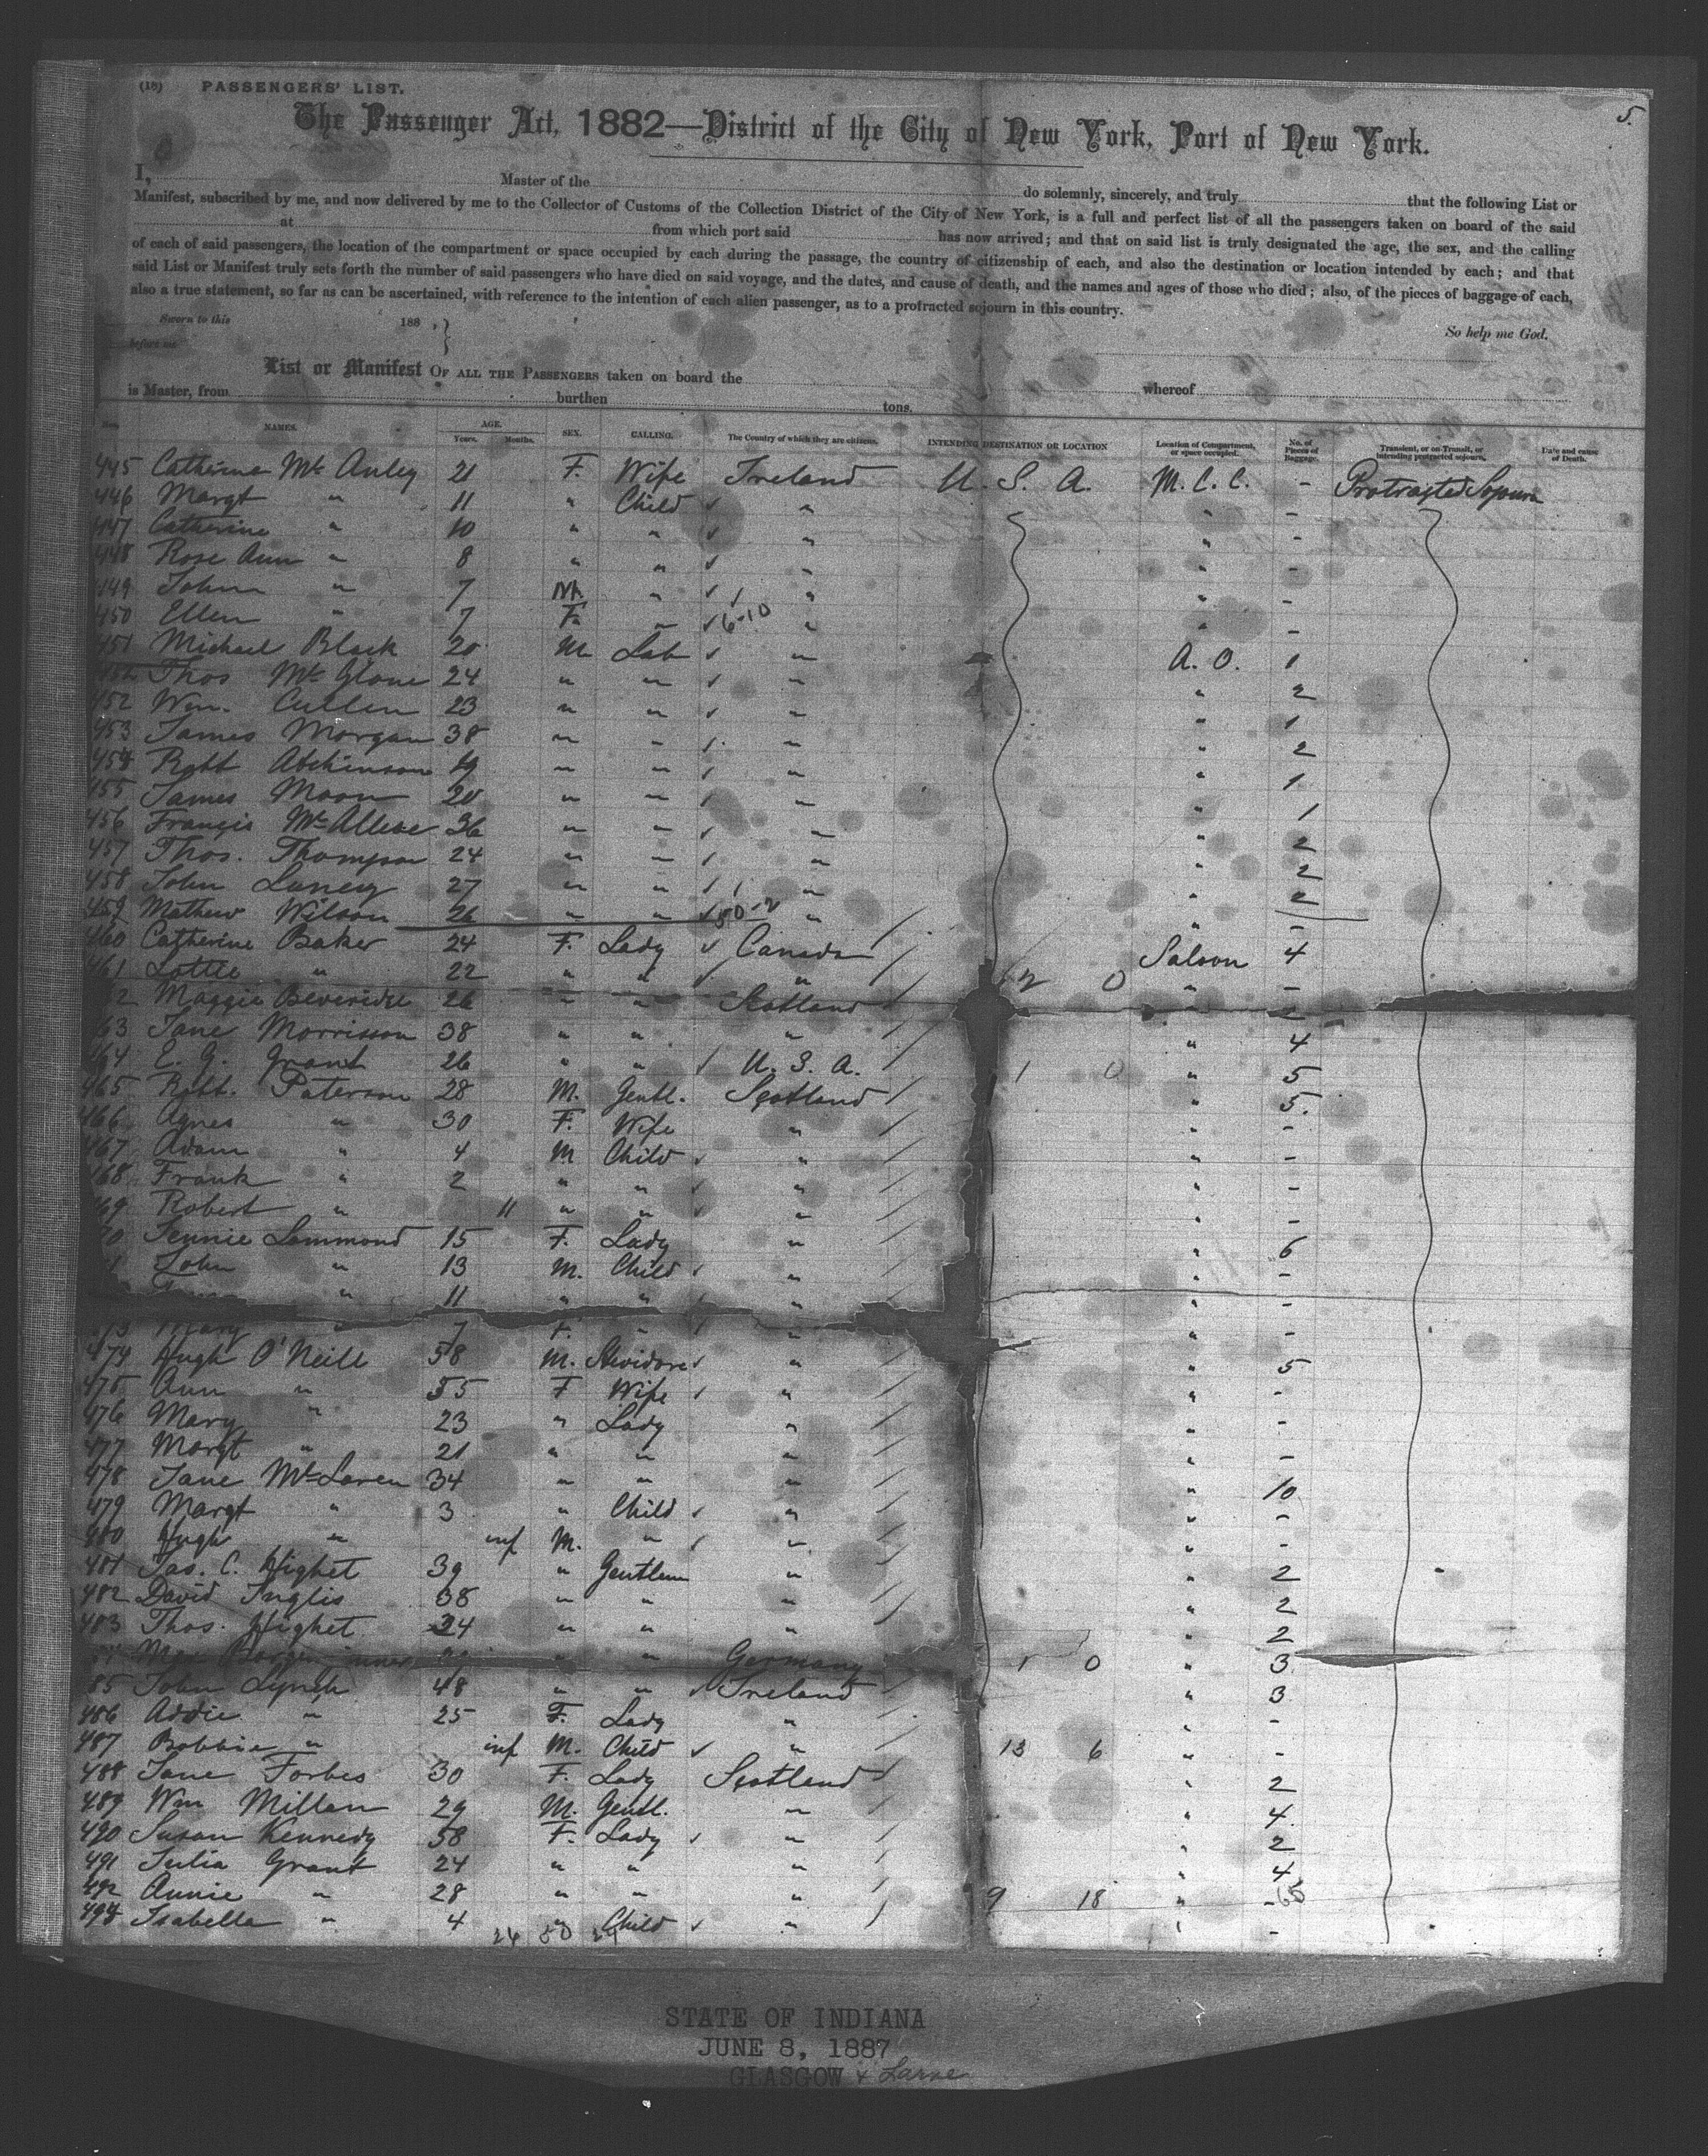 (18) PASSENGERS' LIST.
5.
The Passenger Act, 1882—District of the City of New York, Port of New York.
I, Master of the do solemnly, sincerely, and truly that the following List or
Manifest, subscribed by me, and now delivered by me to the Collector of Customs of the Collection District of the City of New York, is a full and perfect list of all the passengers taken on board of the said
at from which port said has now arrived; and that on said list is truly designated the age, the sex, and the calling
of each of said passengers, the location of the compartment or space occupied by each during the passage, the country of citizenship of each, and also the destination or location intended by each; and that
said List or Manifest truly sets forth the number of said passengers who have died on said voyage, and the dates, and cause of death, and the names and ages of those who died; also, of the pieces of baggage of each,
also a true statement, so far as can be ascertained, with reference to the intention of each alien passenger, as to a protracted sojourn in this country.
Sworn to this 188 , } So help me God.
before me
List or Manifest OF ALL THE PASSENGERS taken on board the whereof
is Master, from burthen tons.
NAMES. AGE. Years. Months. SEX. CALLING. The Country of which they are citizens. INTENDING DESTINATION OR LOCATION Location of Compartment, or space occupied. No. of Pieces of Baggage. Transient, or on Transit, or intending protracted sojourn. Date and cause of Death.
445 Catherine Mc Auley 21 F. Wife Ireland U. S. A. M.C.C. - Protracted Sojourn
446 Margt " 11 " Child " " -
447 Catherine " 10 " " " " -
448 Rose Ann " 8 " " " " -
449 John " 7 M. " " " -
450 Ellen " 7 F. " 6-10 " " -
451 Michael Black 20 M Lab " A. O. 1
452 Thos Mc Glone 24 " " " " 2
452 Wm. Cullen 23 " " " " 1
453 James Morgan 38 " " " " 2
454 Robt Atchinson 19 " " " " 1
455 James Moon 20 " " " " 1
456 Francis McAlleve 36 " " " " 2
457 Thos. Thompson 24 " " " " 2
458 John Laney 27 " " " " 2
459 Mathew Wilson 26 " " 50-2 " " -
460 Catherine Baker 24 F. Lady Canada Saloon 4
461 Lottie " 22 " " " 2 0 " -
2 Maggie Beveridge 26 " " Scotland "
463 Jane Morrisson 38 " " " " 4
464 E. G. Grant 26 " " U. S. A. 1 0 " 5
465 Robt. Paterson 28 M. Gentl. Scotland " 5.
466 Agnes " 30 F. Wife " " -
467 Adam " 4 M Child " " -
468 Frank " 2 " " " " -
469 Robert " 11 " " " " -
70 Jennie Lammond 15 F. Lady " " 6
1 John " 13 M. Child " " -
" 11 " " " " -
473 Mary " 7 F. " " " -
474 Hugh O'Neill 58 M. Stevidore " " 5
475 Ann " 55 F Wife " " -
476 Mary " 23 " Lady " " -
477 Margt " 21 " " " " -
478 Jane McLaren 34 " " " " 10
479 Margt " 3 " Child " " -
480 Hugh " inf M. " " " -
481 Jas. C. Highet 39 " Gentlem " " 2
482 David Inglis 38 " " " " 2
483 Thos. Highet 34 " " " " 2
Max " " Germany 1 0 " 3
85 John Lynch 48 " " Ireland " 3
486 Addie " 25 F. Lady " " -
487 Bobbie " inf M. Child " 13 6 " -
488 Jane Forbes 30 F. Lady Scotland " 2
489 Wm Millan 29 M. Gentl. " " 4.
490 Susan Kennedy 58 F. Lady " " 2
491 Julia Grant 24 " " " " 4
492 Annie " 28 " " " 9 18 " -
493 Isabella " 4 " Child " " -
24 50 24
STATE OF INDIANA
JUNE 8, 1887
GLASGOW & Larne